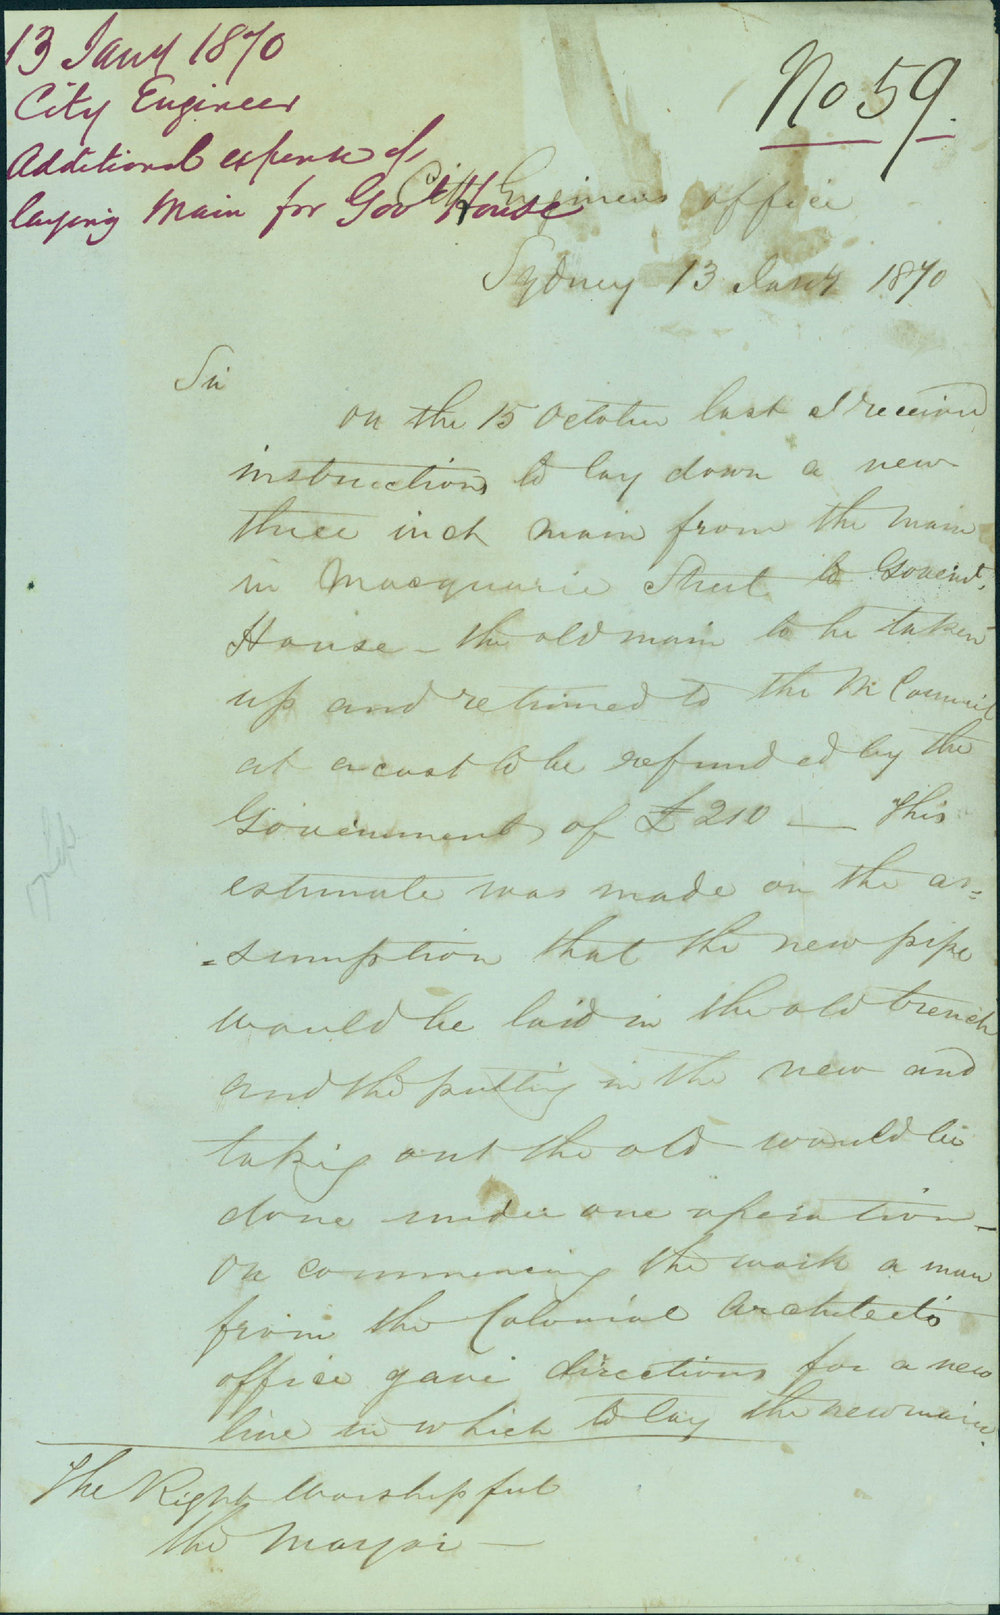 13 Jany 1870
City Engineer
Additional expense of
laying Main for Govt House
No 59.
City Engineers office
Sydney 13 Jany 1870
Sir
On the 15 October last I received
instructions to lay down a new
three inch main from the main
in Macquarie Street to Governt.
House - the old main to be taken
up and returned to the M Council
at a cost to be refunded by the
Government of £210 — This
estimate was made on the as=
=sumption that the new pipe
would be laid in the old trench
and the putting in the new and
taking out the old would be
done under one operation -
On commencing the work a man
from the Colonial Architects
office gave directions for a new
line in which to lay the new main.
The Right Worshipful
the Mayor —